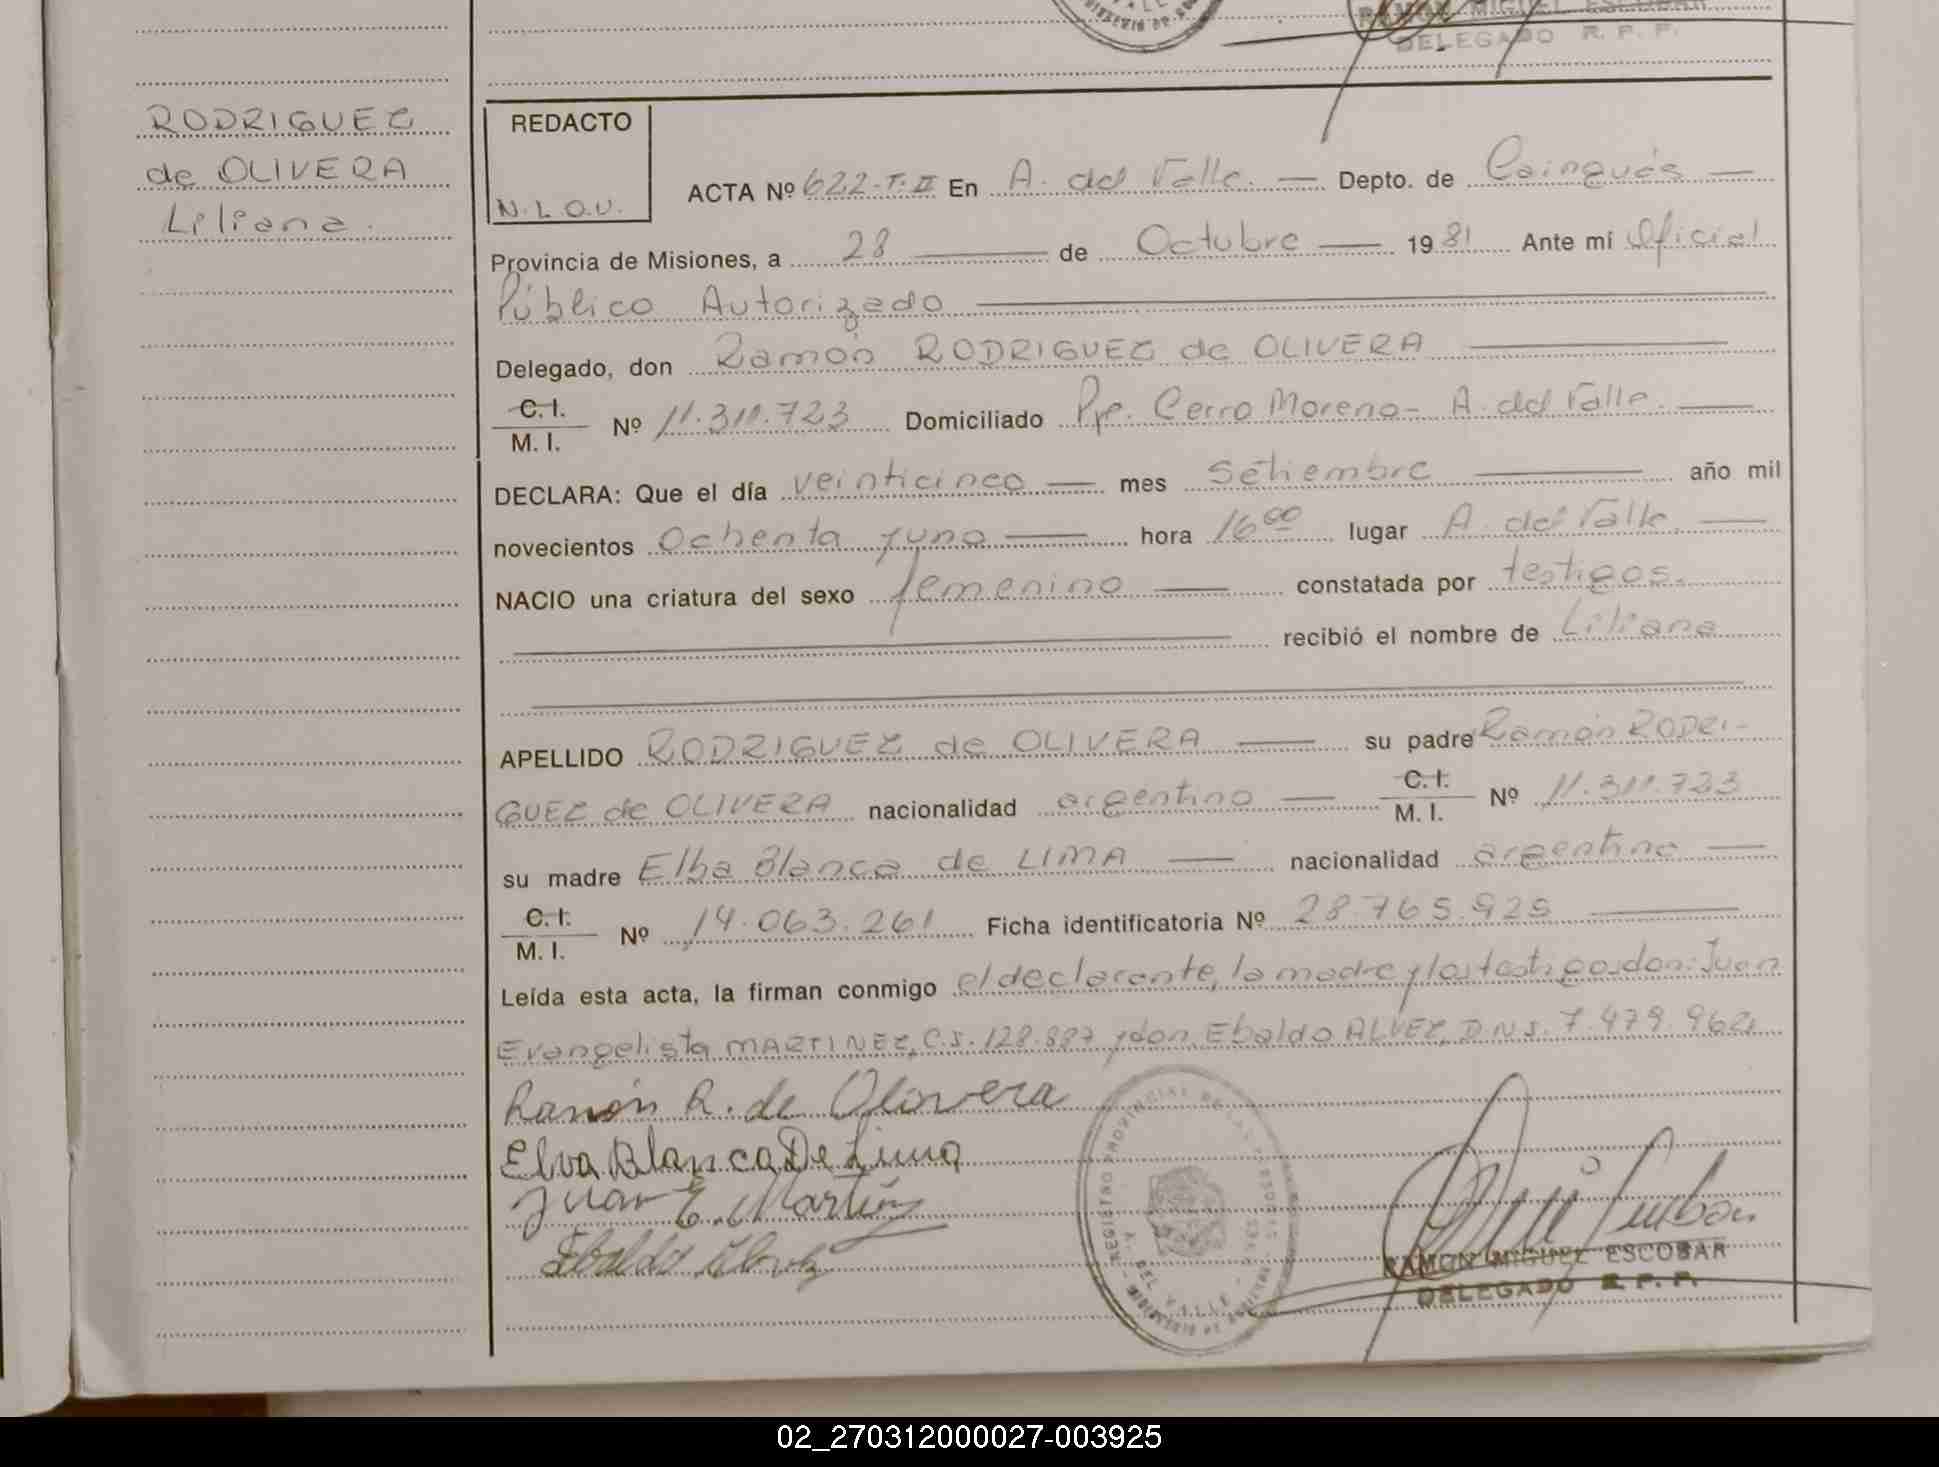 RAMON MIGUEL ESCOBAR
DELEGADO R. P. P.
RODRIGUEZ
de OLIVERA
Liliana.
REDACTO
N.L.O.V.
ACTA Nº 622-T.II En A. del Valle. — Depto. de Cainguás —
Provincia de Misiones, a 28 — de Octubre — 1981 Ante mí Oficial
Público Autorizado —
Delegado, don Ramón RODRIGUEZ de OLIVERA —
C. I.
M. I. Nº 11.311.723 Domiciliado Pje. Cerro Moreno- A. del Valle. —
DECLARA: Que el día veinticinco — mes Setiembre — año mil
novecientos Ochenta y uno — hora 16 00 lugar A. del Valle. —
NACIO una criatura del sexo femenino — constatada por testigos.
— recibió el nombre de Liliana
APELLIDO RODRIGUEZ de OLIVERA — su padre Ramón RODRI-
GUEZ de OLIVERA nacionalidad argentino — C. I. M. I. Nº 11.311.723
su madre Elba Blanca de LIMA — nacionalidad argentina —
C. I.
M. I. Nº 14.063.261 Ficha identificatoria Nº 28.765.925 —
Leída esta acta, la firman conmigo el declarante, la madre y los testigos don: Juan
Evangelista MARTINEZ, C.I. 128.887 y don Ebaldo ALVEZ, D.N.I. 7.479.962
Ramón R. de Olivera
Elva Blanca De Lima
Juan E. Martínez
Ebaldo Alvez
REGISTRO PROVINCIAL DE LAS PERSONAS
A. DEL VALLE
RAMON MIGUEL ESCOBAR
DELEGADO R. P. P.
02_270312000027-003925